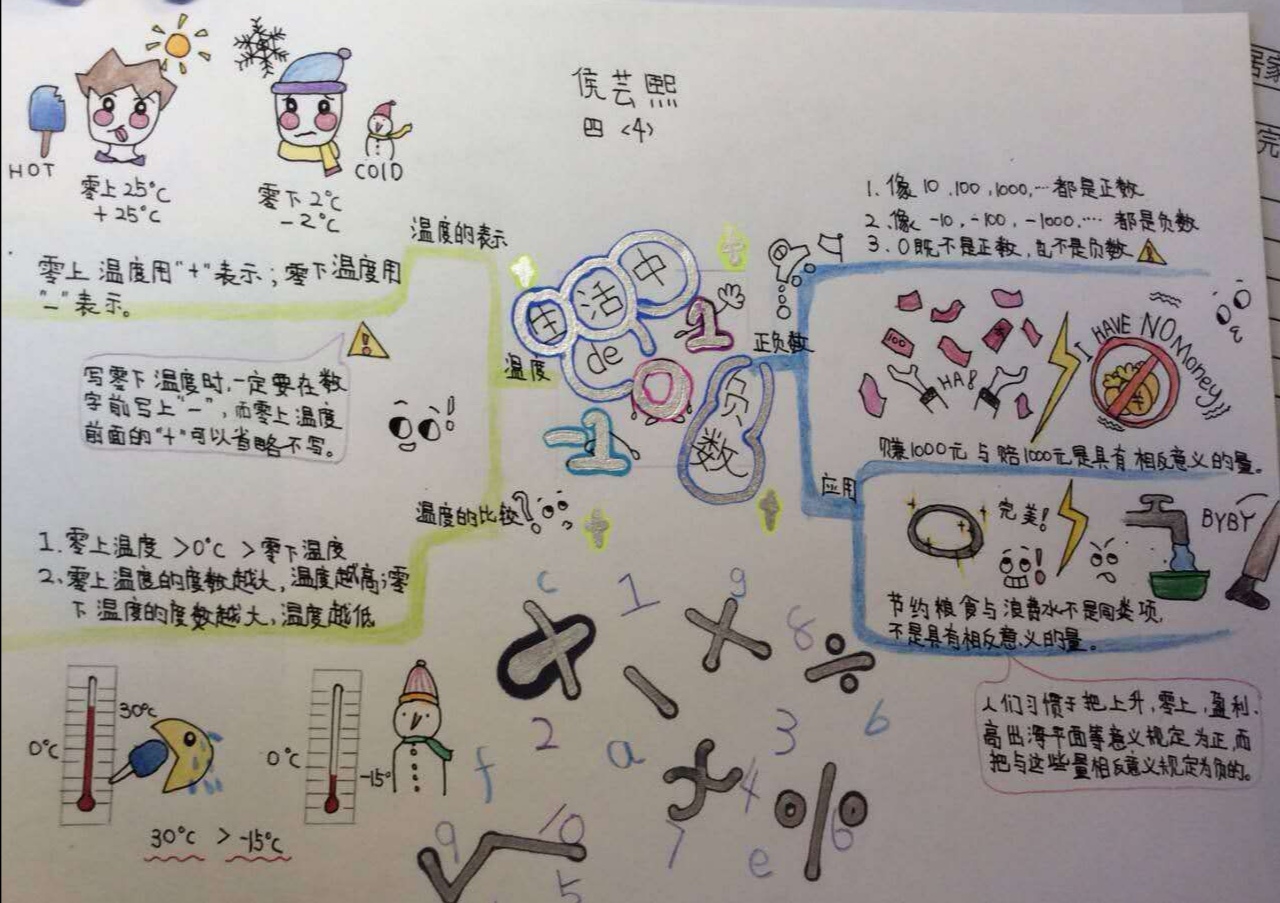 侯芸熙
四<4>
HOT
零上25°C
+25°C
零下2°C
-2°C
COlD
温度的表示
零上温度用"+"表示；零下温度用
"-"表示。
写零下温度时，一定要在数
字前写上"-"，而零上温度
前面的"+"可以省略不写。
温度
温度的比较
1. 零上温度 >0°C >零下温度
2、零上温度的度数越大，温度越高；零
下温度的度数越大，温度越低
30°C
0°C
0°C
-15°
30°C > -15°C
生活中
de
负数
1
0
-1
正负数
1. 像 10 ,100 ,1000,… 都是正数
2. 像 -10, -100, -1000,… 都是负数
3. 0既不是正数，也不是负数
100
HA!
I HAVE NO Money!!
赚1000元 与 赔1000元是具有相反意义的量。
应用
完美!
BYBY
节约粮食与浪费水不是同类项，
不是具有相反意义的量。
人们习惯于把上升，零上，盈利、
高出海平面等意义规定为正，而
把与这些量相反意义规定为负的。
c 1 g 8
2 a 3 b
f 4
9 10 7 e 6
5
居家
完